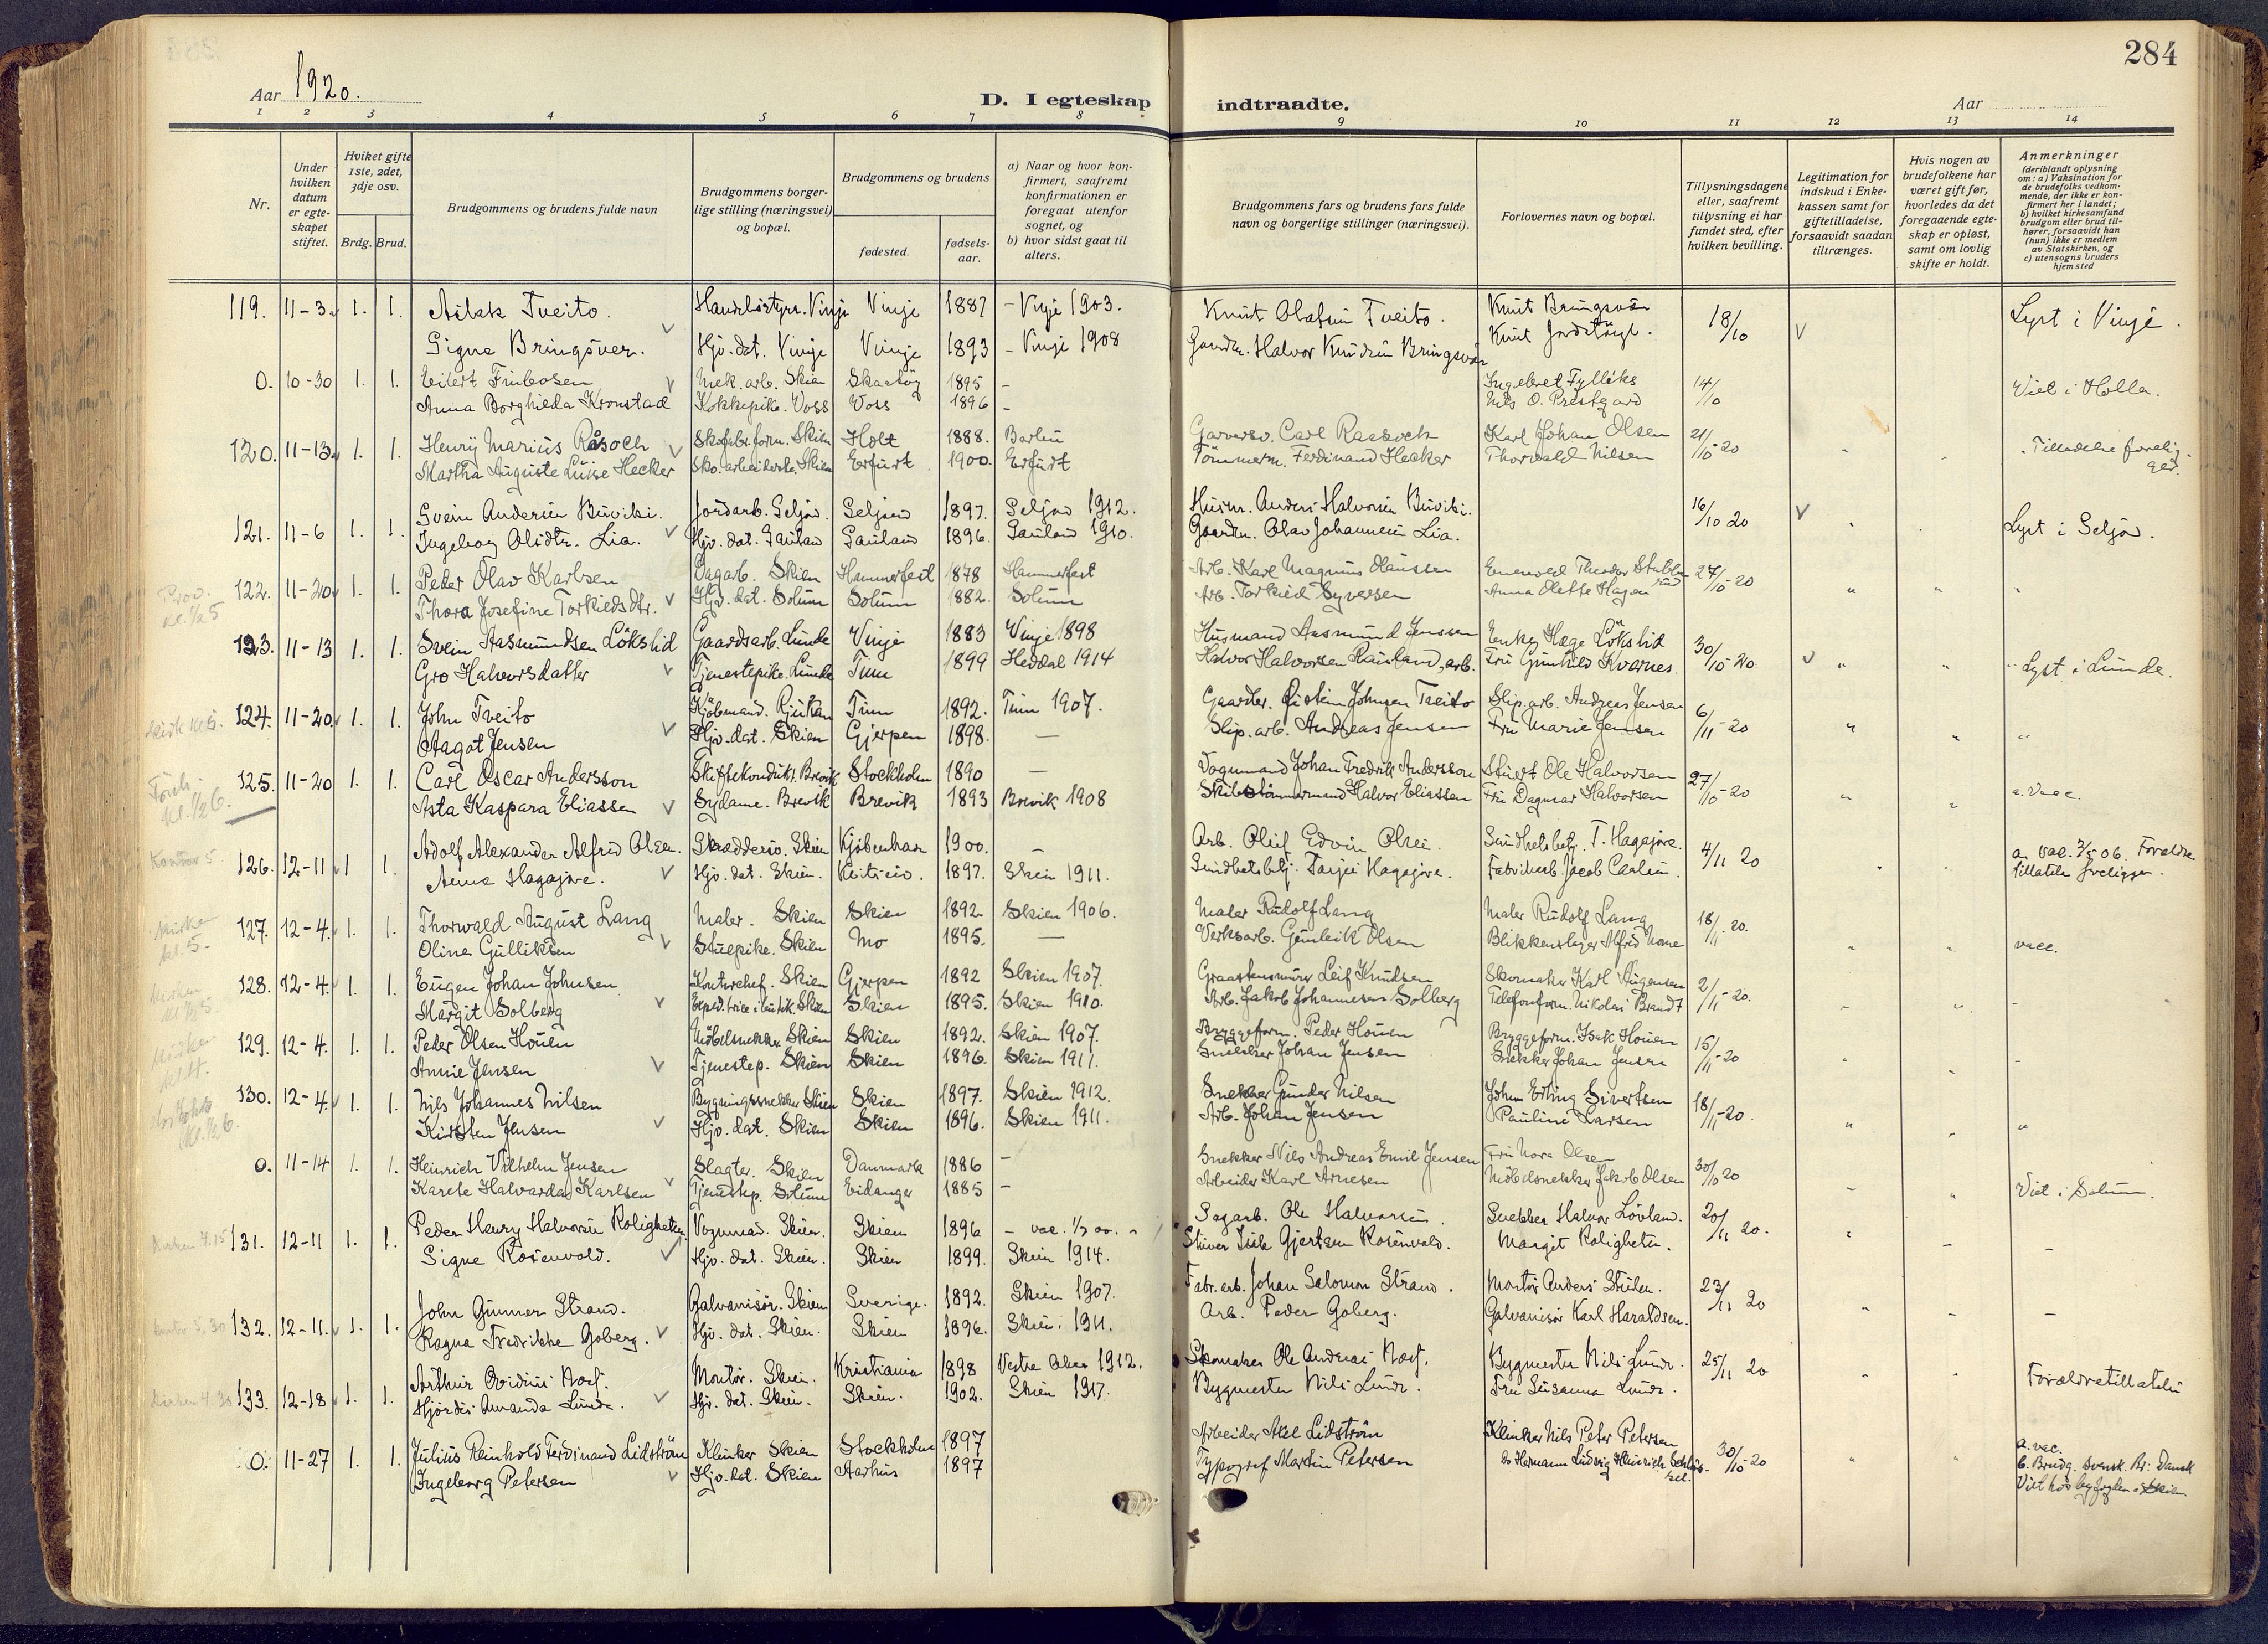 284
Aar 1920.
D. I egteskap indtraadte.
Aar
1 2 3 4 5 6 7 8 9 10 11 12 13 14
Nr.
Under hvilken datum er egte-skapet stiftet.
Hviket gifte 1ste, 2det, 3dje osv.
Brdg. Brud.
Brudgommens og brudens fulde navn
Brudgommens borger-lige stilling (næringsvei) og bopæl.
Brudgommens og brudens
fødested.
fødsels-aar.
a) Naar og hvor kon-firmert, saafremt konfirmationen er foregaat utenfor sognet, og
b) hvor sidst gaat til alters.
Brudgommens fars og brudens fars fulde navn og borgerlige stillinger (næringsvei).
Forlovernes navn og bopæl.
Tillysningsdagene eller, saafremt tillysning ei har fundet sted, efter hvilken bevilling.
Legitimation for indskud i Enke-kassen samt for giftetilladelse, forsaavidt saadan tiltrænges.
Hvis nogen av brudefolkene har været gift før, hvorledes da det foregaaende egte-skap er opløst, samt om lovlig skifte er holdt.
Anmerkninger (deriblandt oplysning om: a) Vaksination for de brudefolks vedkom-mende, der ikke er kon-firmert her i landet; b) hvilket kirkesamfund brudgom eller brud til-hører, forsaavidt han (hun) ikke er medlem av Statskirken, og c) utensogns bruders hjemsted
119. 11-3 1. 1. Aslak Tveito. Vinje 1887 - Vinje 1903. Knut Olafsen Tveito. Knut Bringsvær 18/10 V Lyst i Vinje.
Signe Bringsver. Hjv. dat. Vinje Vinje 1893 - Vinje 1908 Gaardbr. Halvor Knudsen Bringsvær Knut
0. 10-30 1. 1. Eilert Finbosen Mek. arb. Skien Skaatøy 1895 - Ingebret Fylliks 14/10 Viet i Holla.
Anna Borghilda Kronstad Kokkepike. Voss Voss 1896 - Nils O. Prestgard
120. 11-13 1. 1. Henry Marius Råsoch Skofabr. form. Skien Holt 1888. Garversv. Carl Raasoch Karl Johan Olsen 21/10-20
Martha Auguste Luise Hecker Sko. arbeiderske. Skien Erfurt 1900. Erfurt Tømmerm. Ferdinand Hecker Thorvald Nilsen
121. 11-6 1. 1. Svein Andersen Buviki. Jordarb. Seljord. Seljord 1897. Seljord 1912. Husm. Anders Halvorsen Buviki. 16/10 20 V Lyst i Seljord.
Ingeborg Olsdtr. Lia. Hjv. dat. Sauland Sauland 1896. Sauland 1910. Gaardbr. Olav Johannesen Lia.
122. 11-20 1. 1. Peder Olav Karlsen Dagarb. Skien Hammerfest 1878 Hammerfest Arb. Karl Magnus Olaussen Enevold Theodor 27/10-20
Thora Josefine Torkildsdtr. Hjv. dat. Solum Solum 1882. Solum Arb. Torkild Syversen Anna Olette Hagen
123. 11-13 1. 1. Svein Aasmundsen Lökslid Gaardsarb. Lunde Vinje 1883 Vinje 1898 Husmand Aasmund Jenssen Enke Hæge Lökslid 30/10-20 V Lyst i Lunde.
Gro Halvorsdatter Tjenestepike. Lunde Tinn 1899 Heddal 1914 Halvor Halvorsen Rauland, arb. Fru Gunhild Kvarnes
124. 11-20 1. 1. John Tveito Kjöbmand. Rjukan Tinn 1892. Tinn 1907. Gaardbr. Østein Johnsen Tveito Slip. arb. Andreas Jensen 6/11-20
Aagot Jensen Hjv. dat. Skien Gjerpen 1898. — Slip. arb. Andreas Jensen Fru Marie Jensen
125. 11-20 1. 1. Carl Oscar Andersson Skiftekondukt. Brevik Stockholm 1890 — Vognmand Johan Fredrik Andersson Stuert Ole Halvorsen 27/10-20 a. vacc.
Asta Kaspara Eliassen Sydame. Brevik Brevik 1893 Brevik 1908 Skibstømmermand Halvor Eliassen Fru Dagmar Halvorsen
126. 12-11 1 1. Adolf Alexander Alfred Olsen. Skræddersv. Skien Kjöbenhavn 1900. — Arb. Oluf Edvin Olsen. Sundhetsbetj. T. Hagajore. 4/11 20
Anna Hagajore. Hjv. dat. Skien. 1897. Skien 1911. Sundhetsbetj. Tarjei Hagajore. Fabrikarb. Jacob Carlsen.
127. 12-4. 1. 1. Thorwald August Lang Maler. Skien Skien 1892 Skien 1906. Maler Rudolf Lang Maler Rudolf Lang 18/11 20. vacc.
Oline Gulliksen Stuepike. Skien Mo 1895. — Verksarb. Gunleik Olsen Blikkenslager Alfred
128. 12-4. 1. 1. Eugen Johan Johnsen Kontorchef. Skien Gjerpen 1892 Skien 1907. Leif Knudsen Skomaker Karl Augensen 2/11-20.
Margit Solberg Skien 1895. Skien 1910. Arb. Jakob Johannesen Solberg Telefonform. Nikolai Brandt
129. 12-4. 1. 1. Peder Olsen Houen Möbelsnekker Skien Skien 1892. Skien 1907. Byggeform. Peder Houen Byggeform. Isak Houen 15/11-20
Annie Jensen Tjenestep. Skien Skien 1896. Skien 1911. Snekker Johan Jensen Snekker Johan Jensen
130. 12-4. 1. 1. Nils Johannes Nilsen Bygningssnekker Skien Skien 1897. Skien 1912. Snekker Gunder Nilsen John Erling Sivertsen 18/11-20.
Kirsten Jensen Hjv. dat. Skien Skien 1896. Skien 1911. Arb. Johan Jensen Pauline Larsen
0. 11-14 1. 1. Heinrich Vilhelm Jensen Slagter. Skien Danmark 1886 - Snekker Nils Andreas Emil Jensen Fru Nora Olsen 30/10 20 Viet i Solum.
Karete Halvarda Karlsen Tjenestep. Solum Eidanger 1885 - Arbeider Karl Arnesen Möbelsnekker Jakob Olsen
131. 12-11 1. 1. Peder Henry Halvorsen Roligheten Vognmand. Skien. Skien 1896 Sagarb. Ole Halvorsen. Snekker Halvor Lövland. 20/11 20.
Signe Rosenvold. Hjv. dat. Skien. Skien 1899. Skien 1914. Gjertsen Rosenvold. Margit Roligheten.
132. 12-11. 1. 1. John Gunnar Strand. Galvanisör. Skien Sverige. 1892. Skien 1907. Fabr. arb. Johan Salomon Strand. Montör Anders 23/11 20
Ragna Fredrikke Goberg. Hjv. dat. Skien. Skien 1896. Skien. 1911. Arb. Peder Goberg. Galvanisör Karl Haraldsen.
133. 12-18 1. 1. Arthur Ovidius Næss. Montör. Skien. Kristiania 1898 Vestre Aker 1912. Skomaker Ole Andreas Næss. Bygmester Nils Lunde. 25/11 20 Forældretillatelse
Hjördis Amanda Lunde. Hjv. dat. Skien. Skien. 1902. Skien 1917. Bygmester Nils Lunde. Fru Susanna Lunde.
0. 11-27 1. 1. Julius Reinhold Ferdinand Lidström Klinker Skien Stockholm 1897 Arbeider Axel Lidström Klinker Nils Peter Petersen 30/10-20 a. vac.
Ingeborg Petersen Hjv. dat. Skien Aarhus 1897 Typograf Martin Petersen Do Hermann Ludvig Heinrich b. Brudg. svensk. Br: Dansk
Viet hos byfogden i Skien